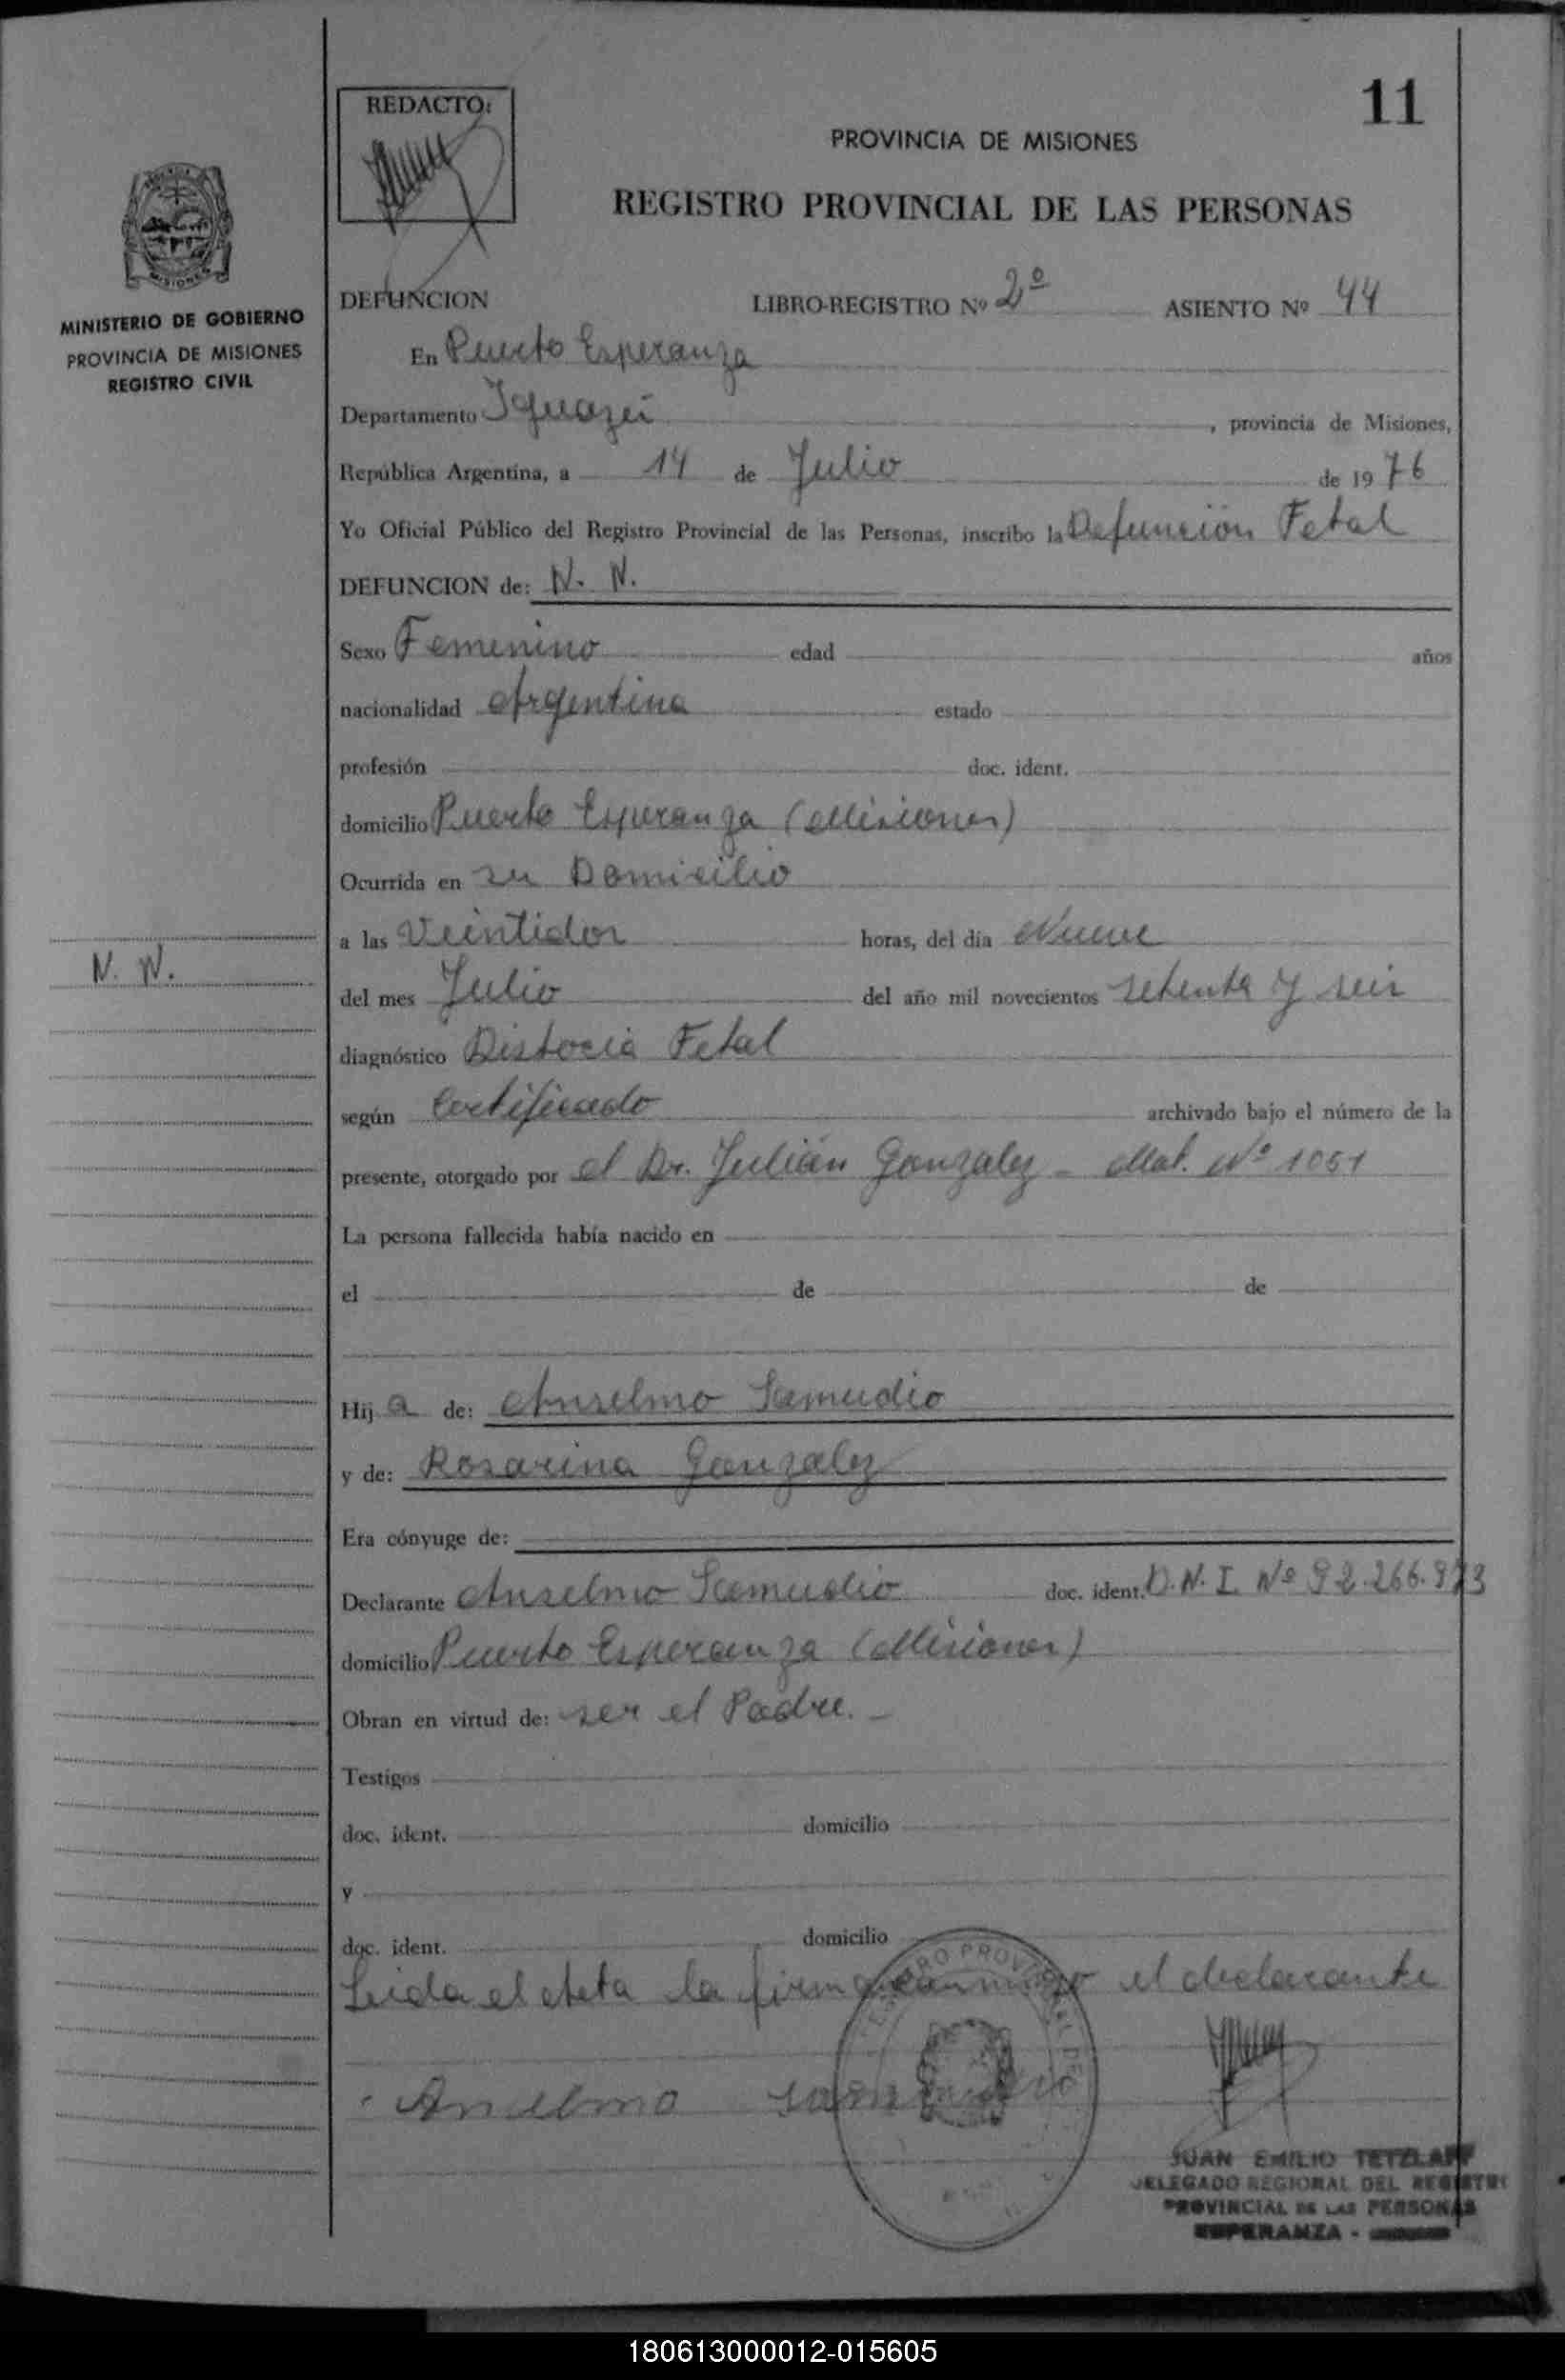 11
REDACTO:
PROVINCIA DE MISIONES
REGISTRO PROVINCIAL DE LAS PERSONAS
MISIONES
MINISTERIO DE GOBIERNO
PROVINCIA DE MISIONES
REGISTRO CIVIL
DEFUNCION LIBRO-REGISTRO Nº 2º ASIENTO Nº 44
En Puerto Esperanza
Departamento Iguazú , provincia de Misiones,
República Argentina, a 14 de Julio de 1976
Yo Oficial Público del Registro Provincial de las Personas, inscribo la Defunción Fetal
DEFUNCION de: N. N.
Sexo Femenino edad años
nacionalidad Argentina estado
profesión doc. ident.
domicilio Puerto Esperanza (Misiones)
Ocurrida en su Domicilio
a las Veintidos horas, del día Nueve
N. N.
del mes Julio del año mil novecientos setenta y seis
diagnóstico Distocia Fetal
según Certificado archivado bajo el número de la
presente, otorgado por el Dr. Julián Gonzalez - Mat. Nº 1051
La persona fallecida había nacido en
el de de
Hija de: Anselmo Samudio
y de: Rosarina Gonzalez
Era cónyuge de:
Declarante Anselmo Samudio doc. ident. D.N.I. Nº 92.266.973
domicilio Puerto Esperanza (Misiones)
Obran en virtud de: ser el Padre. -
Testigos
doc. ident. domicilio
y
doc. ident. domicilio
Leida el Acta la firma conmigo el declarante
Anselmo Samudio
JUAN EMILIO TETZLAFF
DELEGADO REGIONAL DEL REGISTRO
PROVINCIAL DE LAS PERSONAS
ESPERANZA -
180613000012-015605